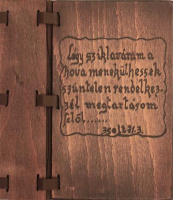 Légy sziklaváram a
hova menekülhessek
szüntelen rendelkez-
zél megtartásom
felől......
zsolt 71.3